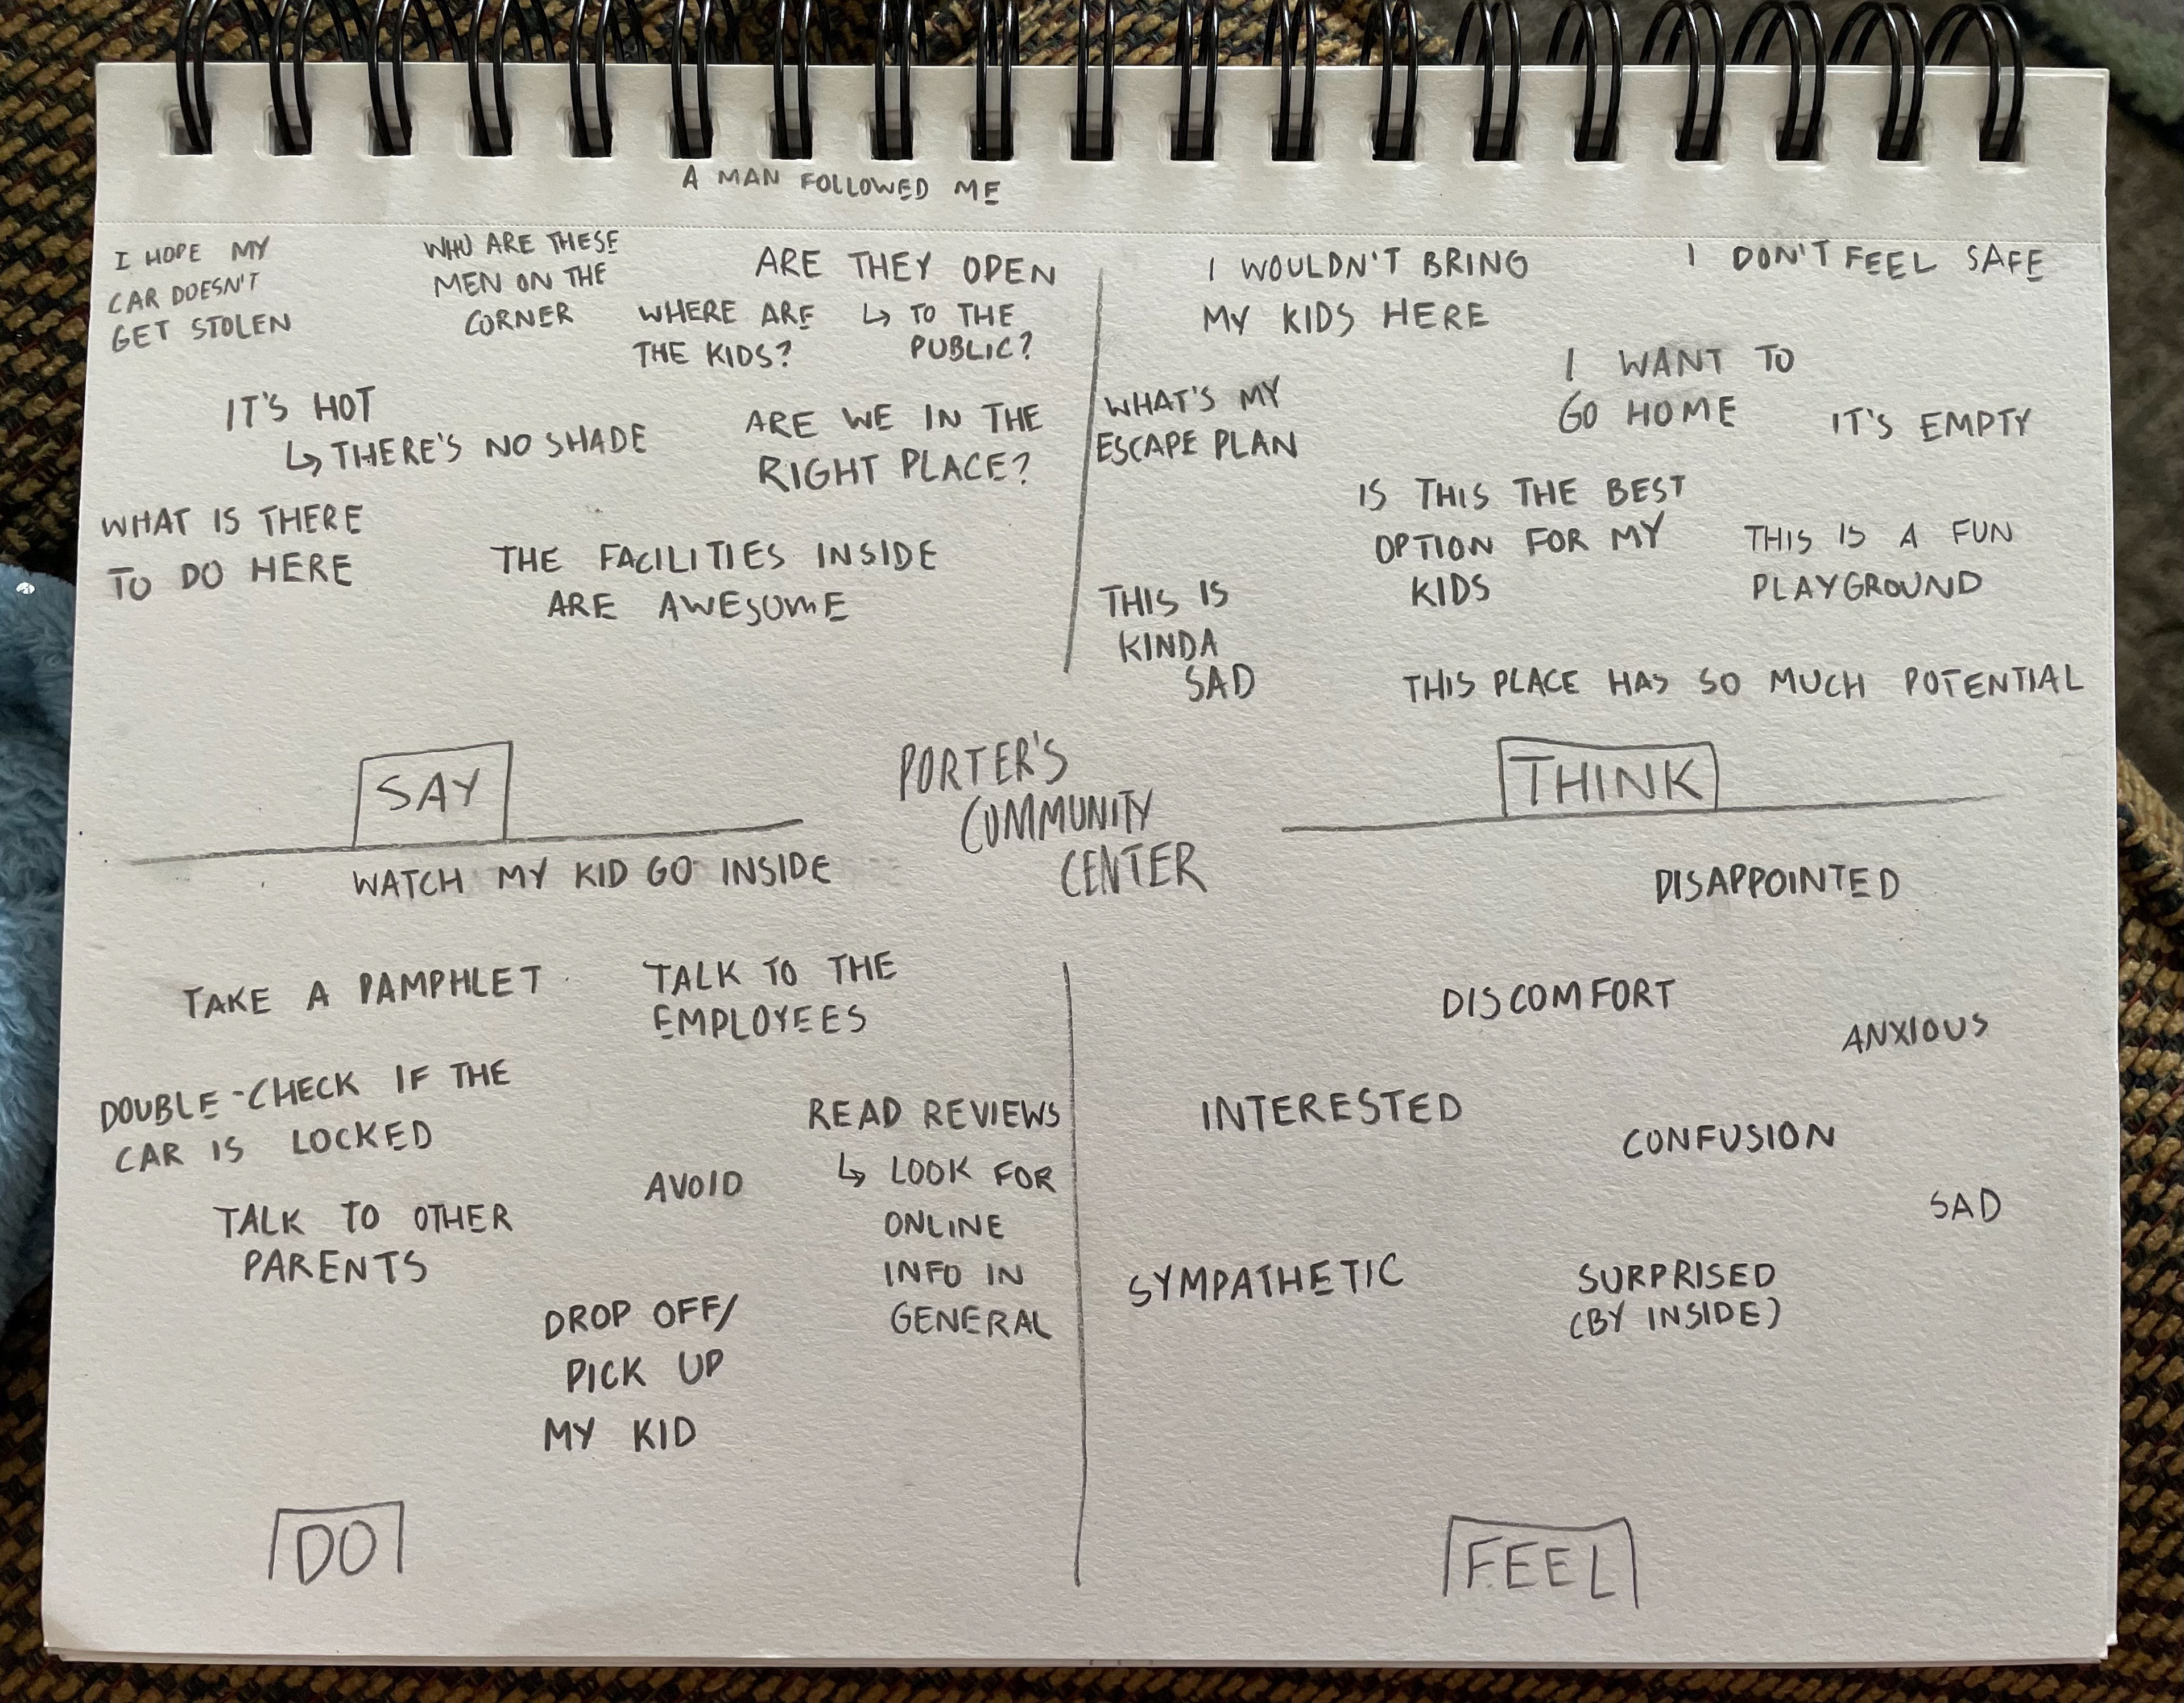 A MAN FOLLOWED ME
I HOPE MY
CAR DOESN'T
GET STOLEN
WHO ARE THESE
MEN ON THE
CORNER
ARE THEY OPEN
↳ TO THE
PUBLIC?
WHERE ARE
THE KIDS?
IT'S HOT
↳ THERE'S NO SHADE
ARE WE IN THE
RIGHT PLACE?
WHAT IS THERE
TO DO HERE
THE FACILITIES INSIDE
ARE AWESOME
SAY
I WOULDN'T BRING
MY KIDS HERE
I DON'T FEEL SAFE
WHAT'S MY
ESCAPE PLAN
I WANT TO
GO HOME
IT'S EMPTY
IS THIS THE BEST
OPTION FOR MY
KIDS
THIS IS A FUN
PLAYGROUND
THIS IS
KINDA
SAD
THIS PLACE HAS SO MUCH POTENTIAL
THINK
PORTER'S
COMMUNITY
CENTER
WATCH MY KID GO INSIDE
TAKE A PAMPHLET
TALK TO THE
EMPLOYEES
DOUBLE-CHECK IF THE
CAR IS LOCKED
READ REVIEWS
↳ LOOK FOR
ONLINE
INFO IN
GENERAL
AVOID
TALK TO OTHER
PARENTS
DROP OFF/
PICK UP
MY KID
DO
DISAPPOINTED
DISCOMFORT
ANXIOUS
INTERESTED
CONFUSION
SAD
SYMPATHETIC
SURPRISED
(BY INSIDE)
FEEL